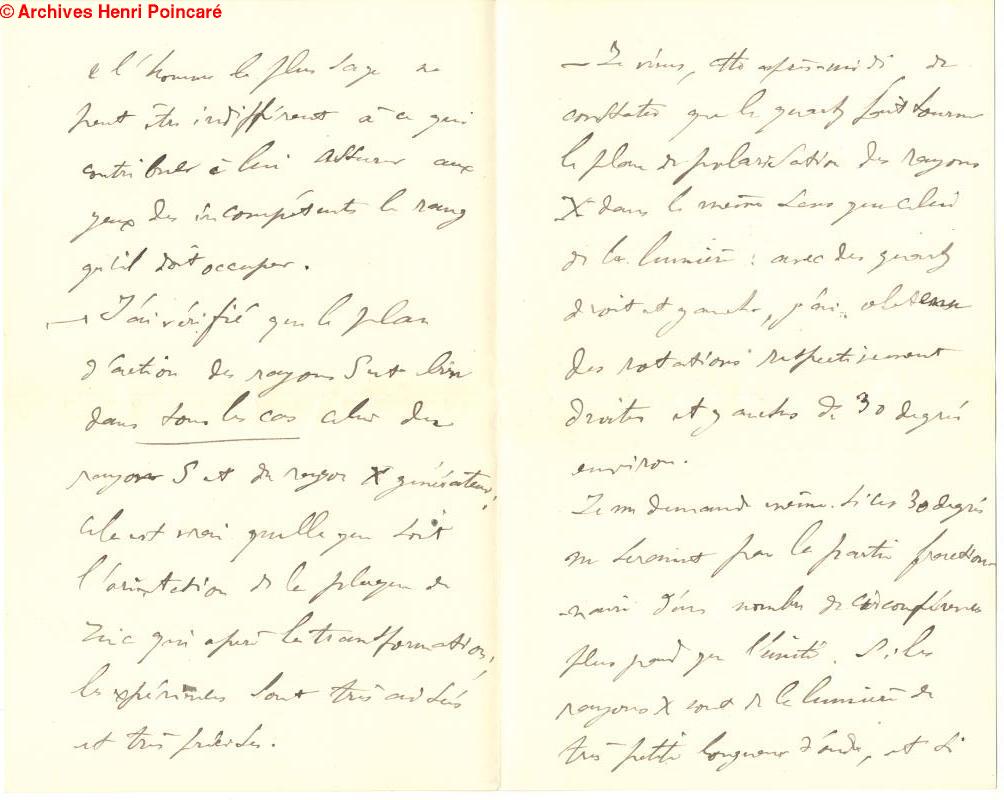 © Archives Henri Poincaré
& l'homme le plus sage ne
peut être indifférent à ce qui
contribue à lui assurer aux
yeux des incompétents le rang
qu'il doit occuper.
— J'ai vérifié que le plan
d'action des rayons S est bien
dans tous les cas celui des
rayons S et du rayon X générateur;
cela est vrai quelle que soit
l'orientation de la plaque de
zinc qui opère la transformation;
les expériences sont très aisées
et très précises.
— Je viens, cette après-midi de
constater que le quartz fait tourner
le plan de polarisation des rayons
X dans le même sens que celui
de la lumière : avec des quartz
droit et gauche, j'ai obtenu
des rotations respectivement
droites et gauches de 30 degrés
environ.
Je me demande même si ces 30 degrés
ne seraient pas la partie fraction-
-naire d'un nombre de circonférences
plus grand que l'unité. Si les
rayons X sont de la lumière de
très petite longueur d'onde, et si